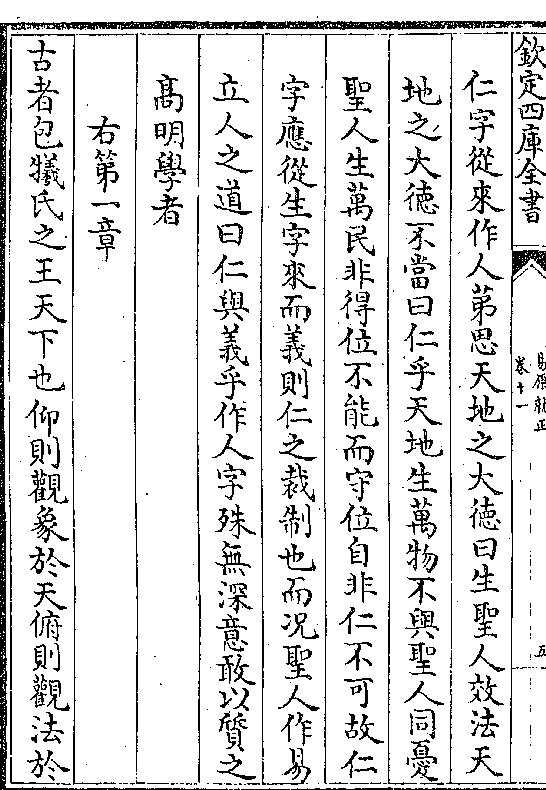 欽定四庫全書
易原就正
卷十一
五
仁字從來作人苐思天地之大德曰生聖人效法天
地之大德不當曰仁乎天地生萬物不與聖人同憂
聖人生萬民非得位不能而守位自非仁不可故仁
字應從生字來而義則仁之裁制也而况聖人作易
立人之道曰仁與義乎作人字殊無深意敢以質之
髙明學者
右第一章
古者包犧氏之王天下也仰則觀象於天俯則觀法於